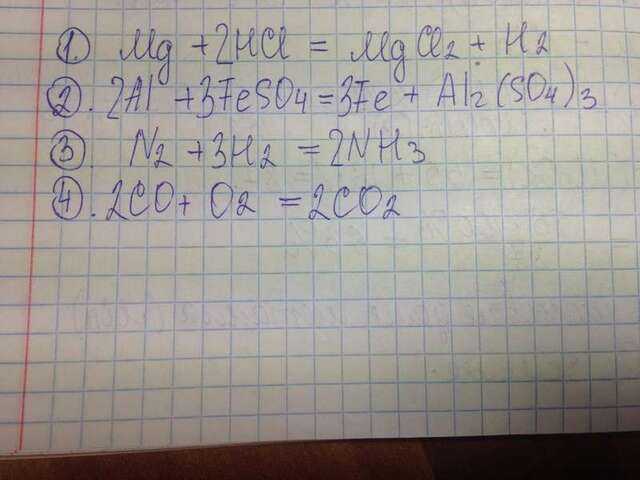 1. Mg + 2HCl = MgCl2 + H2
2. 2Al + 3FeSO4 = 3Fe + Al2(SO4)3
3 N2 + 3H2 = 2NH3
4. 2CO + O2 = 2CO2